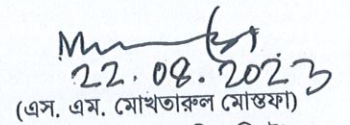 22.08.2023
(এস. এম. মোখতারুল মোস্তফা)